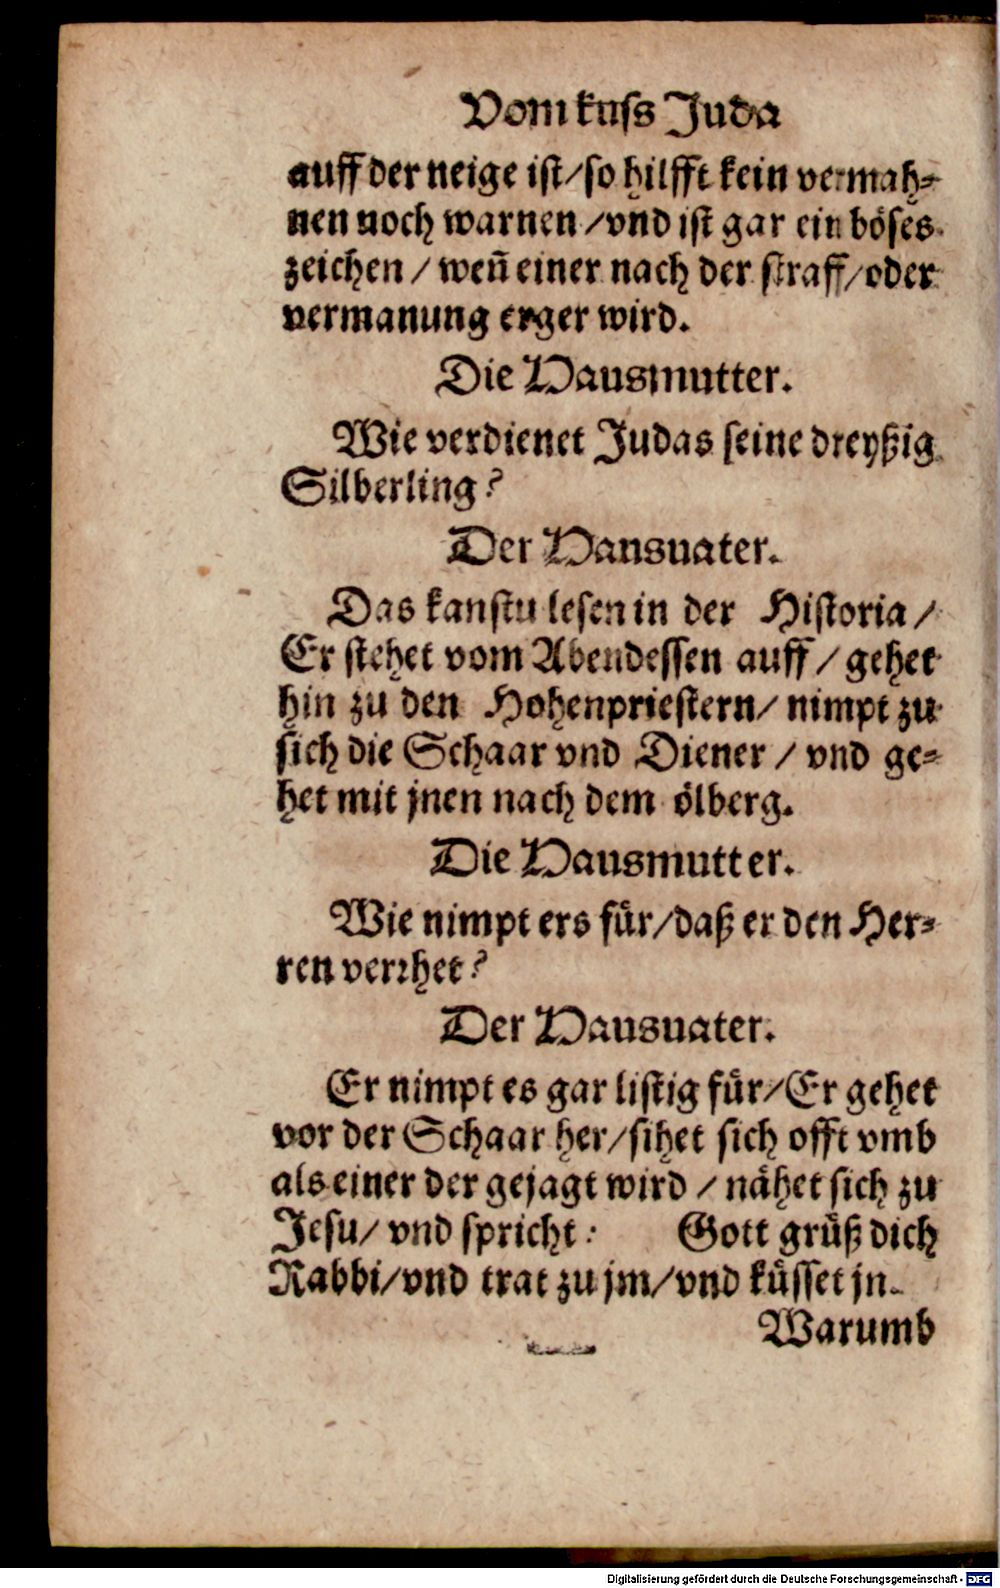 Vom kuss Juda
auff der neige ist/so hilfft kein vermah⸗
nen noch warnen/vnd ist gar ein böses
zeichen/weñ einer nach der straff/oder
vermanung erger wird.
Die Hausmutter.
Wie verdienet Judas seine dreyßig
Silberling?
Der Hausuater.
Das kanstu lesen in der Historia/
Er stehet vom Abendessen auff/gehet
hin zu den Hohenpriestern/nimpt zu
sich die Schaar vnd Diener/vnd ge⸗
het mit jnen nach dem ölberg.
Die Hausmutter.
Wie nimpt ers für/daß er den Her⸗
ren verrhet?
Der Hausuater.
Er nimpt es gar listig für/Er gehet
vor der Schaar her/sihet sich offt vmb
als einer der gejagt wird/nähet sich zu
Jesu/vnd spricht: Gott grüß dich
Rabbi/vnd trat zu jm/vnd küsset jn.
Warumb
Digitalisierung gefördert durch die Deutsche Forschungsgemeinschaft - DFG